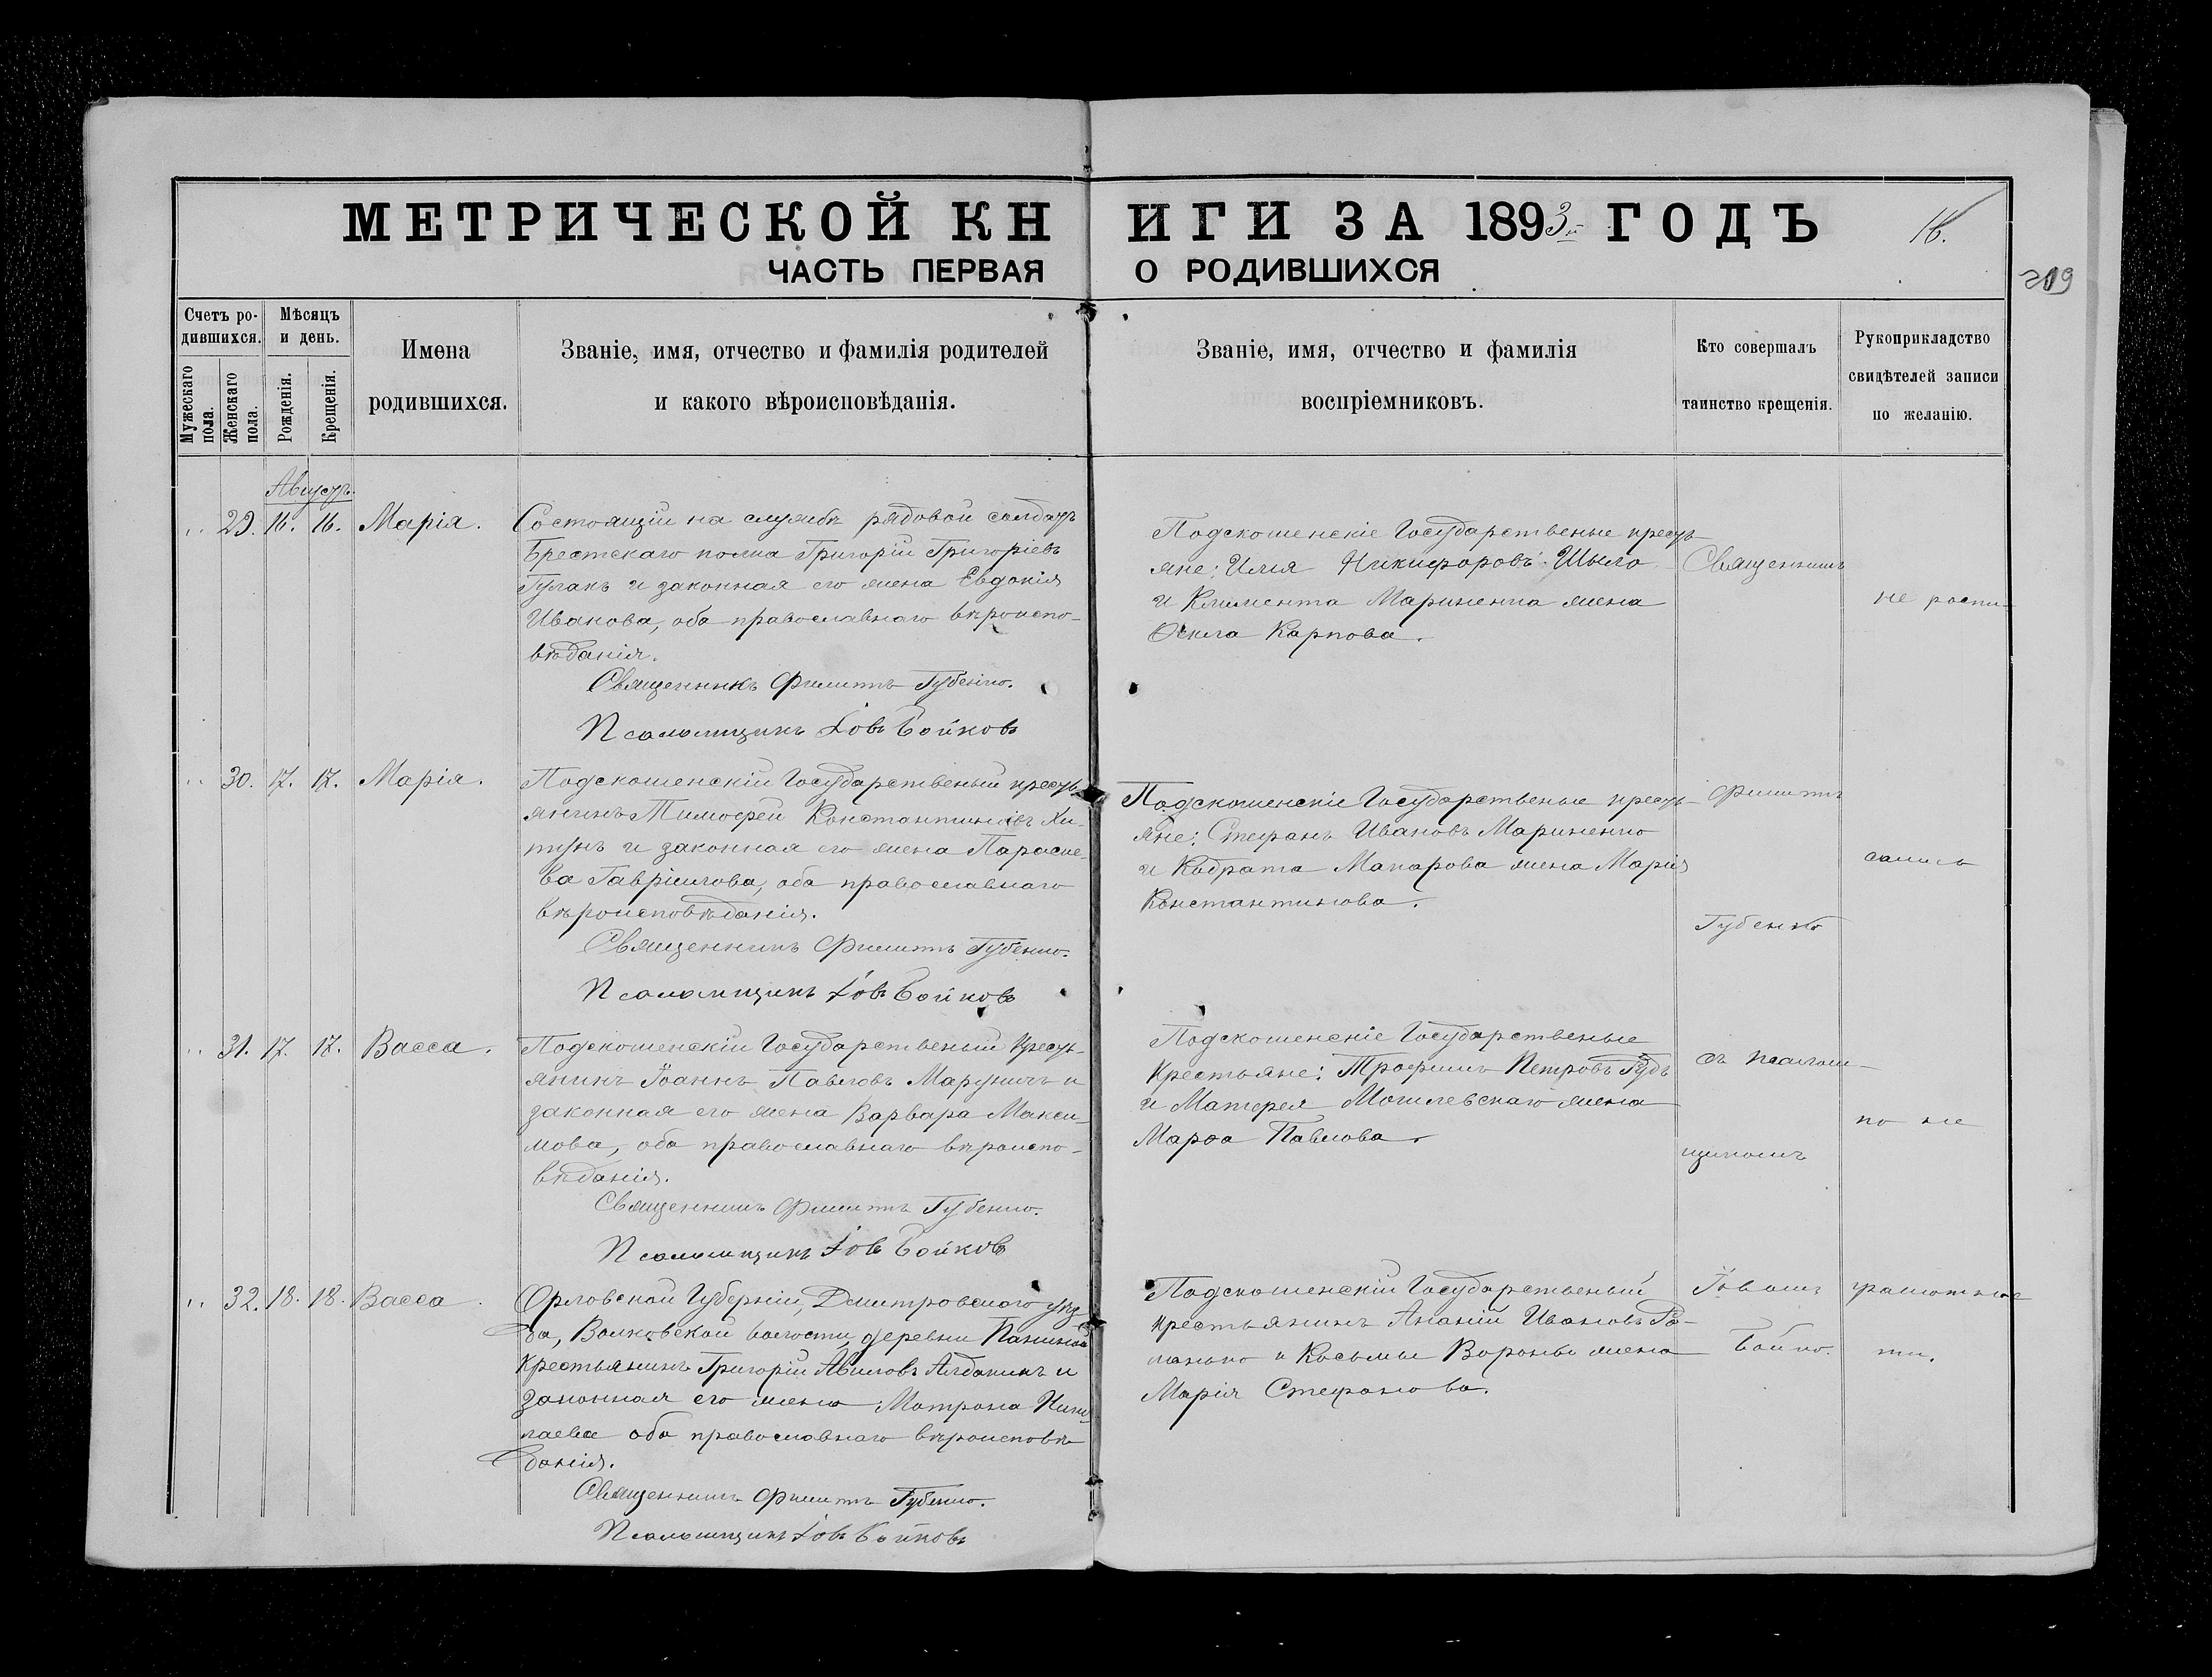 МЕТРИЧЕСКОЙ КНИГИ ЗА 1893й ГОДЪ
16.
ЧАСТЬ ПЕРВАЯ О РОДИВШИХСЯ
209
Счетъ родившихся.
Мужескаго пола.
Женскаго пола.
Мѣсяцъ и день.
Рожденія.
Крещенія.
Имена
родившихся.
Званіе, имя, отчество и фамилія родителей
и какого вѣроисповѣданія.
Званіе, имя, отчество и фамилія
воспріемниковъ.
Кто совершалъ
таинство крещенія.
Рукоприкладство
свидѣтелей записи
по желанію.
Августъ.
29. 16. 16. Марія.
Состоящій на службѣ рядовой солдатъ
Брестскаго полка Григорій Григоріевъ
Гулакъ и законная его жена Евдокія
Иванова, оба православнаго вѣроиспо-
вѣданія.
Священникъ Филиппъ Губенко.
Псаломщикъ Іовъ Бойковъ
Подскошенскіе Государственые кресть-
яне: Илія Никифоровъ Шыло
и Климента Мариненка жена
Карпова.
30. 17. 17. Марія.
Подскошенскій Государственый кресть-
янинъ Тимофей Константиновъ Хи-
тунъ и законная его жена Параске-
ва Гавріилова, оба православнаго
вѣроисповѣданія.
Священникъ Филиппъ Губенко.
Псаломщикъ Іовъ Бойковъ
Подскошенскіе Государственые кресть-
яне: Стефанъ Ивановъ Мариненко
и Кодрата Макарова жена Марія
Константинова.
31. 17. 17. Васса.
Подскошенскій Государственый Кресть-
янинъ Іоаннъ Павловъ Маруничъ и
законная его жена Варвара Макси-
мова, оба православнаго вѣроиспо-
вѣданія.
Священникъ Филиппъ Губенко.
Псаломщикъ Іовъ Бойковъ
Подскошенскіе Государственые
Крестьяне: Трофимъ Петровъ Гудъ
и Матфея Могилевскаго жена
Марѳа Павлова.
32. 18. 18. Васса.
Орловской Губерніи, Дмитровскаго уѣз-
да, Волковской волости, деревни Паниной
Крестьянинъ Григорій Авиловъ Алдакинъ и
законная его жена Матрона Нико-
лаева оба православнаго вѣроисповѣ-
данія.
Священникъ Филиппъ Губенко.
Псаломщикъ Іовъ Бойковъ
Подскошенскій Государственый
крестьянинъ Ананій Ивановъ
и Косьмы Вороны жена
Марія Стефанова.
Священникъ
Филиппъ
Губенко
съ псалом-
щикомъ
Іовомъ
Бойко.
не распи-
сались
по не
грамотнос-
ти.